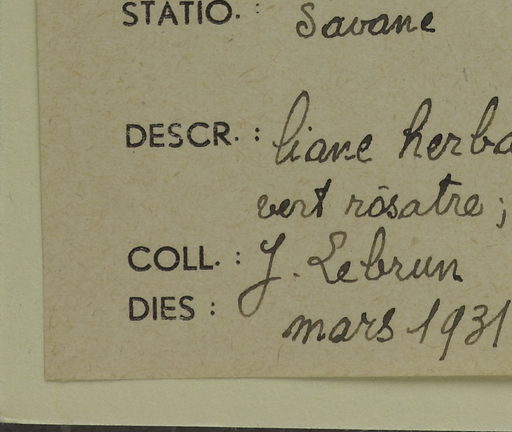 STATIO. : Savane
DESCR. : liane herba
vert rosatre ;
COLL. : J. Lebrun
DIES :
mars 1931